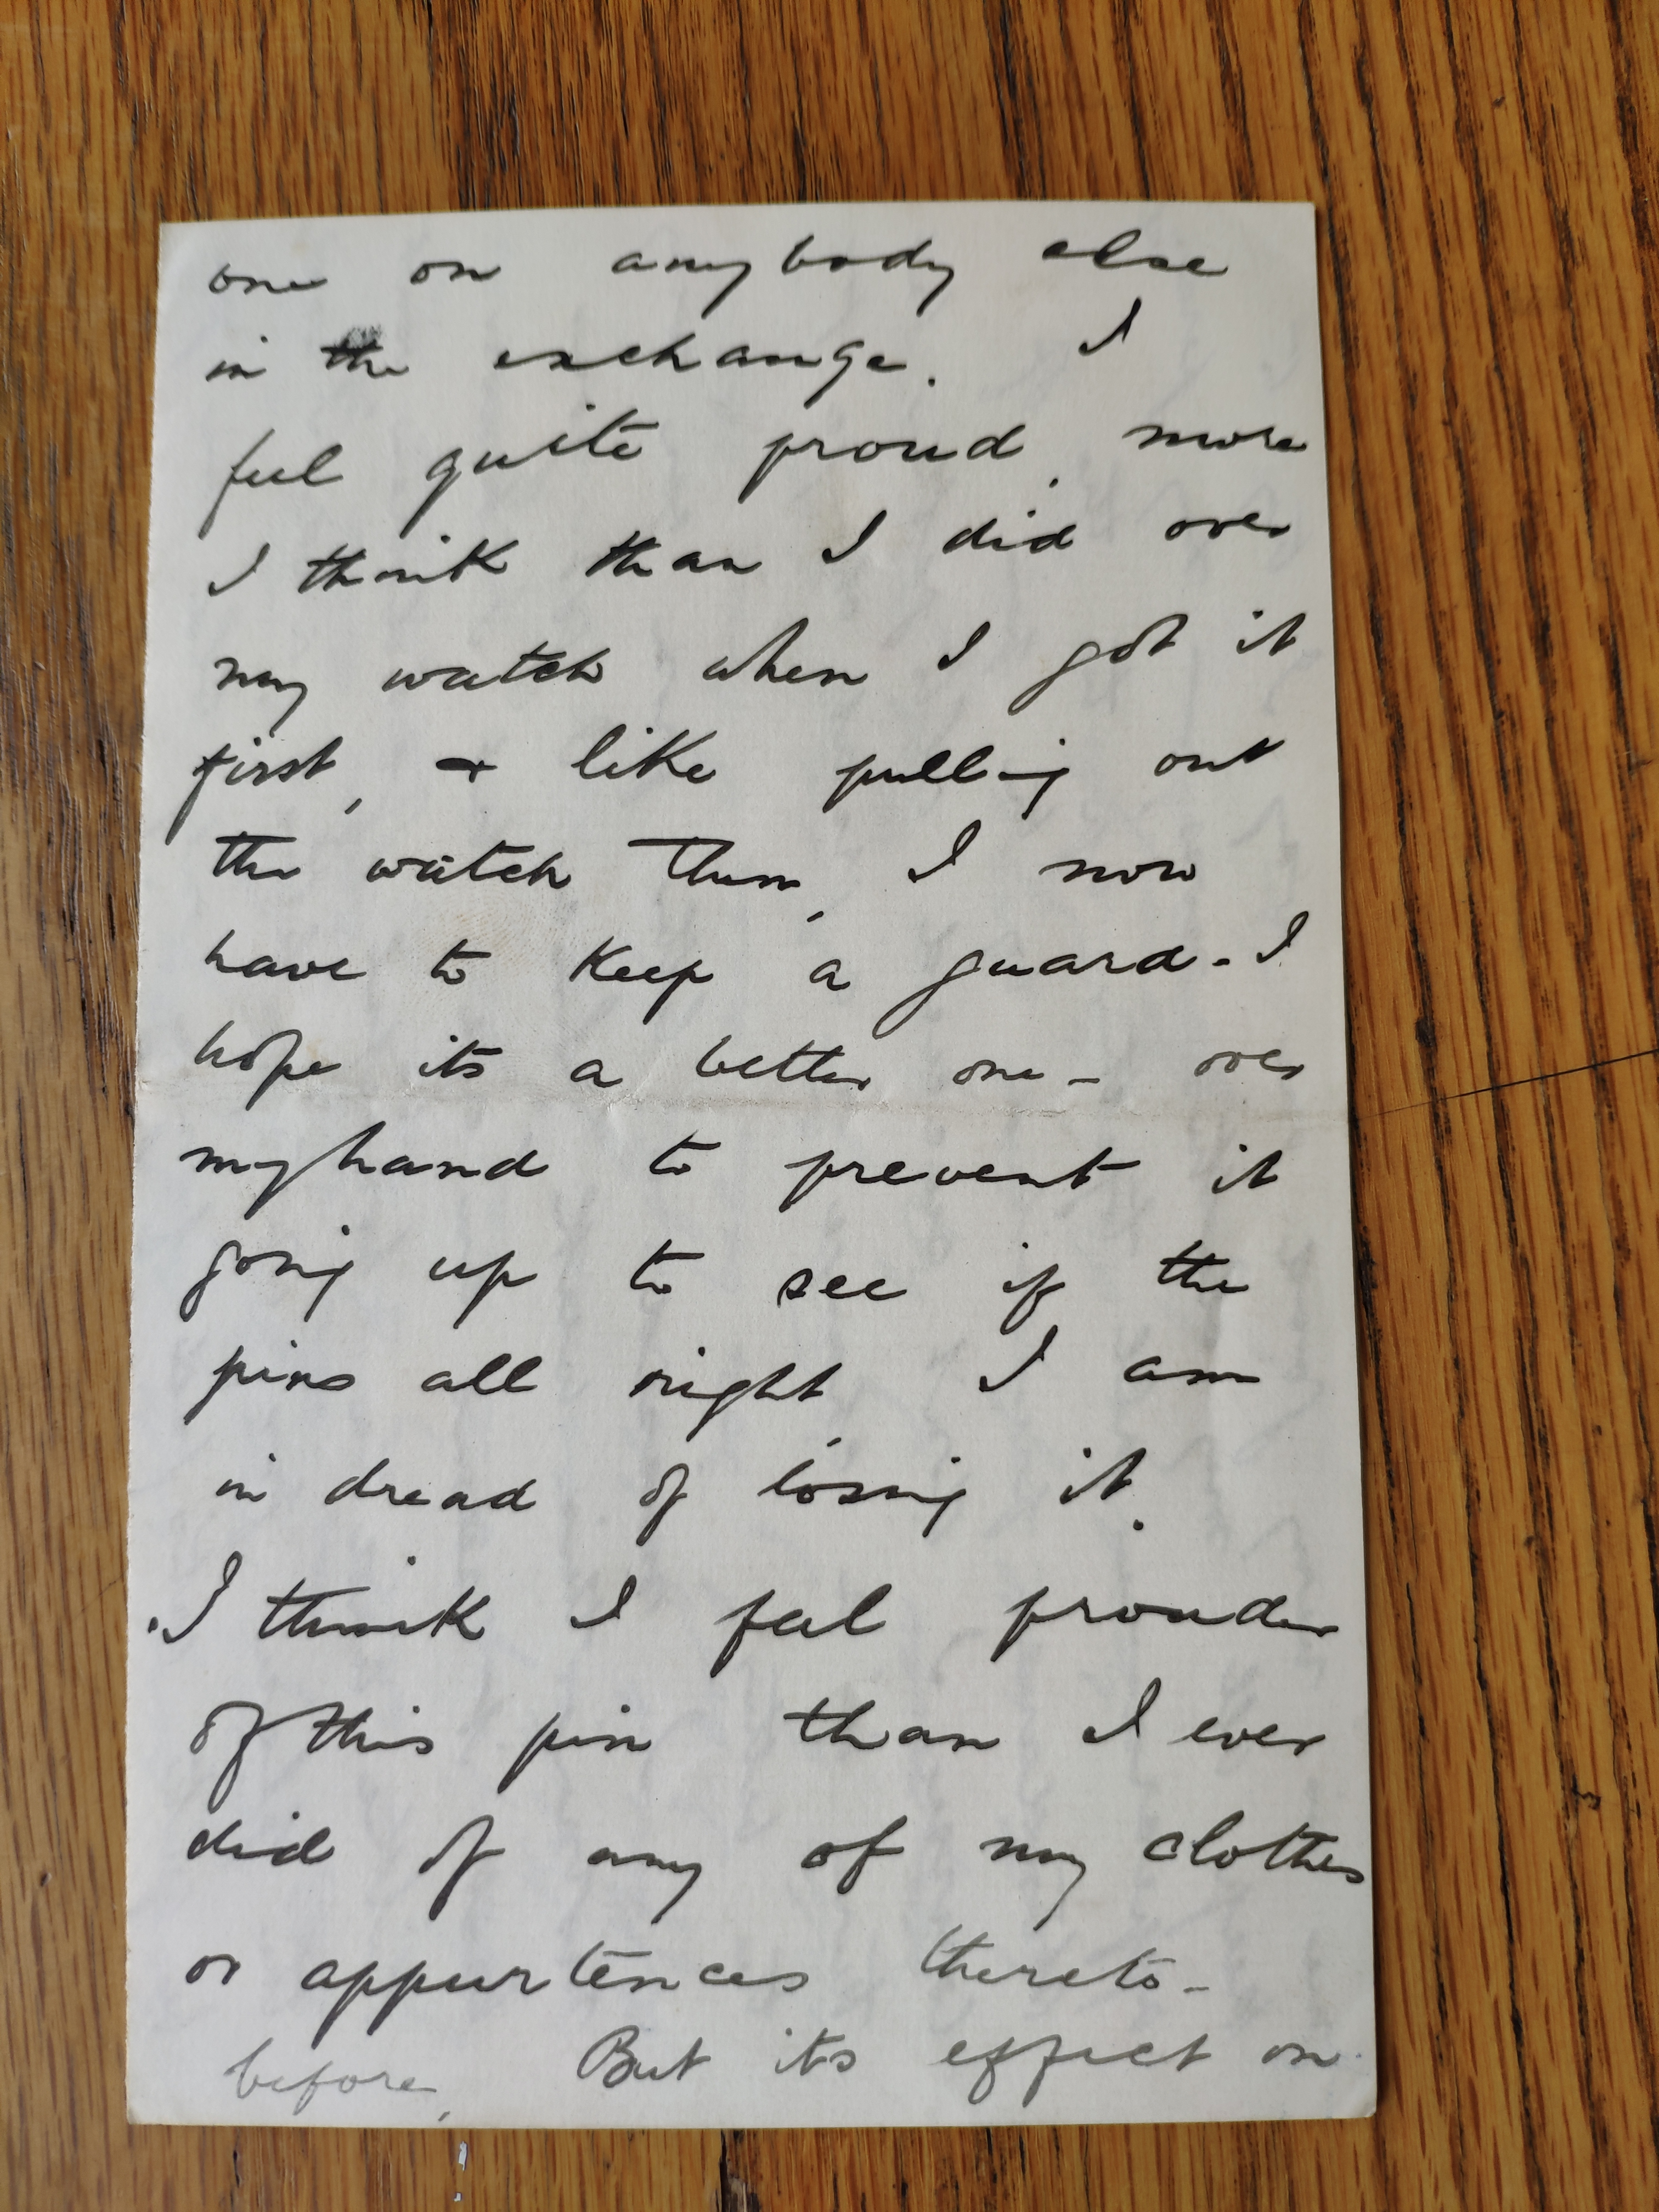 one on anybody else
in the exchange. I
feel quite proud, more
I think than I did over
my watch when I got it
first, & like pulling out
the watch then, I now
have to keep a guard - I
hope its a better one - over
my hand to prevent it
going up to see if the
pins all right, I am
in dread of losing it.
I think I feel prouder
of this pin than I ever
did of any of my clothes
or appurtences thereto -
before, But its effect on